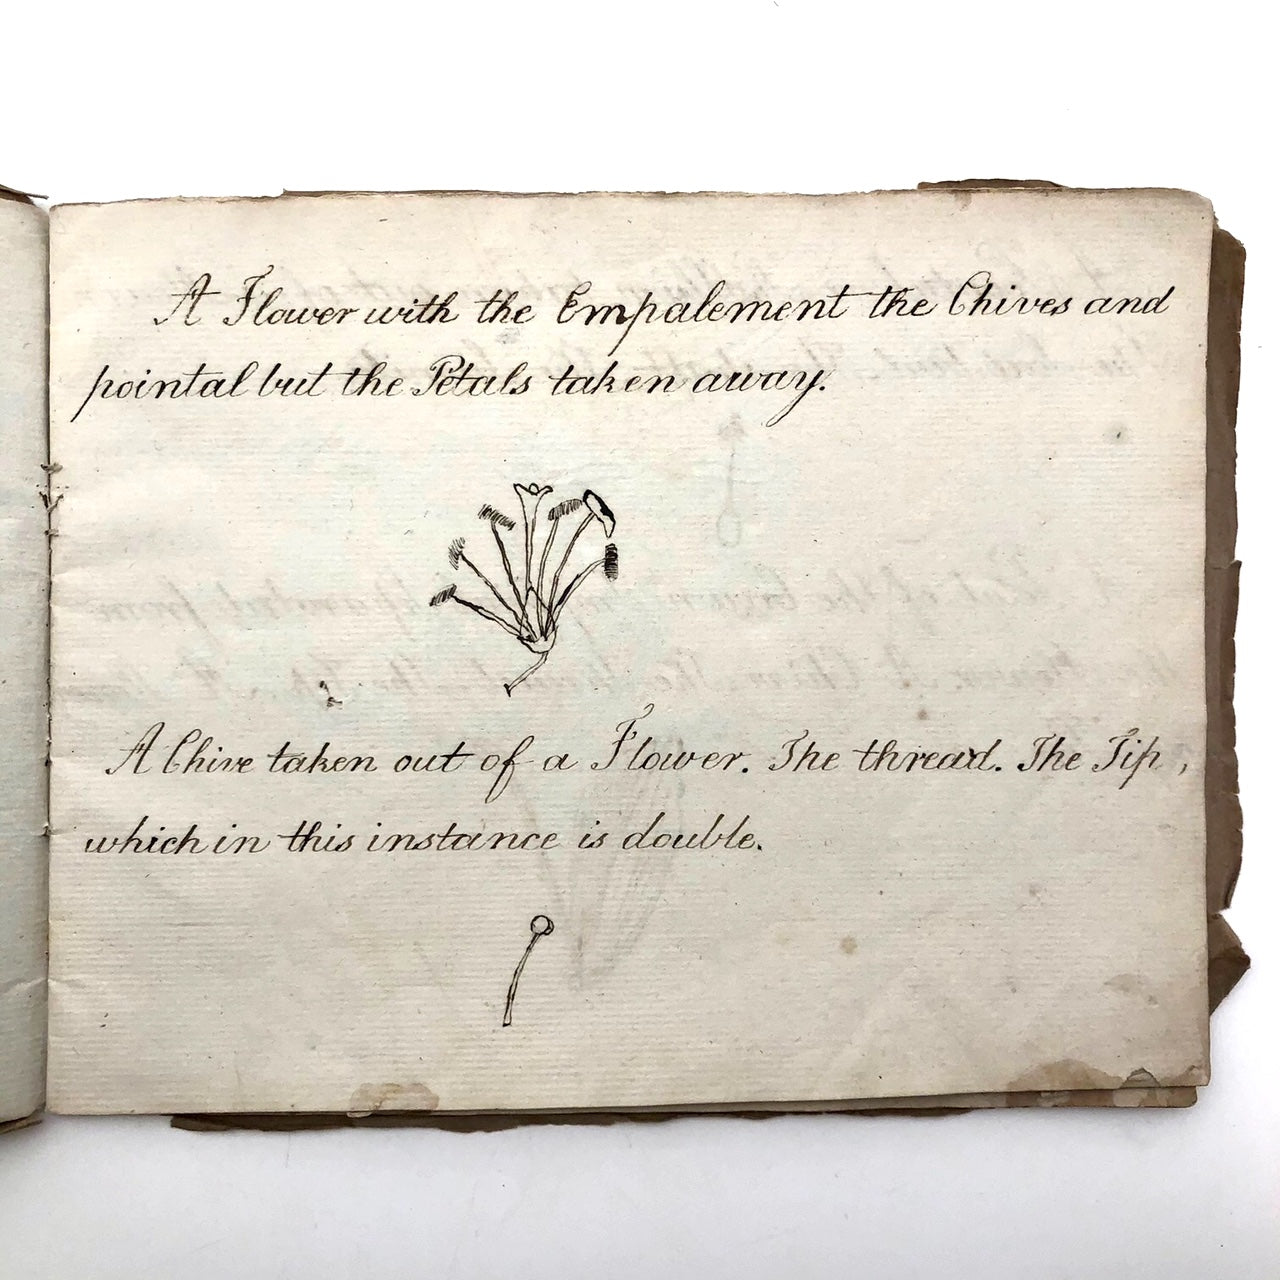 A Flower with the Empalement the Chives and
pointal but the Petals taken away.
A Chive taken out of a Flower. The thread. The Tip,
which in this instance is double.